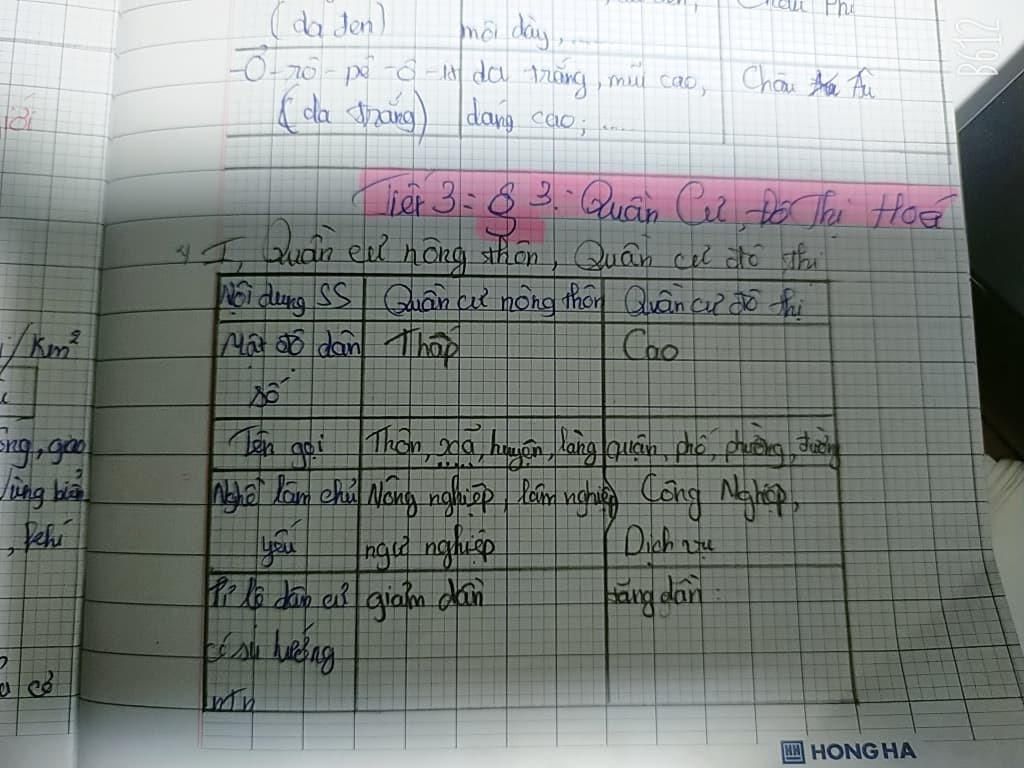 (da đen) môi dày,... Châu Phi
-Ơ-rô-pê-ô-it da trắng, mũi cao, Châu Âu
(da trắng) dáng cao,....
Tiết 3 = § 3: Quần Cư, Đô Thị Hoá
I, Quần cư nông thôn, Quần cư đô thị
Nội dung SS Quần cư nông thôn Quần cư đô thị
Mật độ dân Thấp Cao
số
Tên gọi Thôn, xã, huyện, làng quận, phố, phường, đường
Nghề làm chủ Nông nghiệp, lâm nghiệp Công Nghiệp,
yếu ngư nghiệp Dịch vụ
Tỉ lệ dân cư giảm dần tăng dần
có xu hướng
ntn
/Km²
HH HONG HA
B612